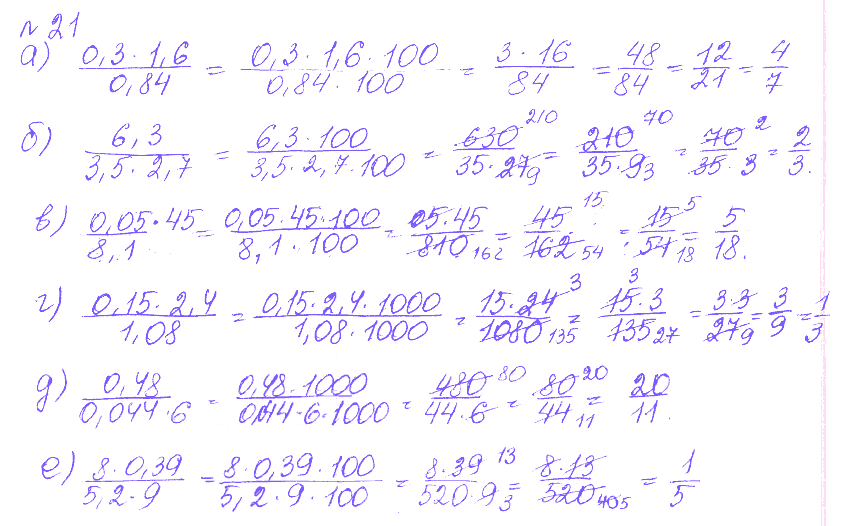 № 21
а) 0,3 · 1,6 / 0,84 = 0,3 · 1,6 · 100 / 0,84 · 100 = 3 · 16 / 84 = 48 / 84 = 12 / 21 = 4 / 7
б) 6,3 / 3,5 · 2,7 = 6,3 · 100 / 3,5 · 2,7 · 100 = 630 210 / 35 · 27 9 = 210 70 / 35 · 9 3 = 70 2 / 35 · 3 = 2 / 3.
в) 0,05 · 45 / 8,1 = 0,05 · 45 · 100 / 8,1 · 100 = 05 · 45 / 810 162 = 45 15 / 162 54 = 15 5 / 54 18 = 5 / 18.
г) 0,15 · 2,4 / 1,08 = 0,15 · 2,4 · 1000 / 1,08 · 1000 = 15 · 24 3 / 1080 135 = 15 3 · 3 / 135 27 = 3 · 3 / 27 9 = 3 / 9 = 1 / 3
д) 0,48 / 0,044 · 6 = 0,48 · 1000 / 0,044 · 6 · 1000 = 480 80 / 44 · 6 = 80 20 / 44 11 = 20 / 11.
е) 8 · 0,39 / 5,2 · 9 = 8 · 0,39 · 100 / 5,2 · 9 · 100 = 8 · 39 13 / 520 · 9 3 = 8 · 13 / 520 40 5 = 1 / 5